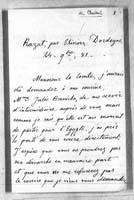 Razat, par Thiviers, Dordogne
24. 9bre. 81.
Monsieur le Comte, j'aurais
dû demander à mon cousin
Mr. Jules de
d'intermédiaire auprès de vous mais
comme je suis pressé et au moment
de partir pour l'Egypte, j'ai pris
le parti de vous écrire directement.
J'espère que vous ne prendrez pas
ma demande en mauvaise part
et que vous ne me refuserez pas
le service que je viens vous demander.